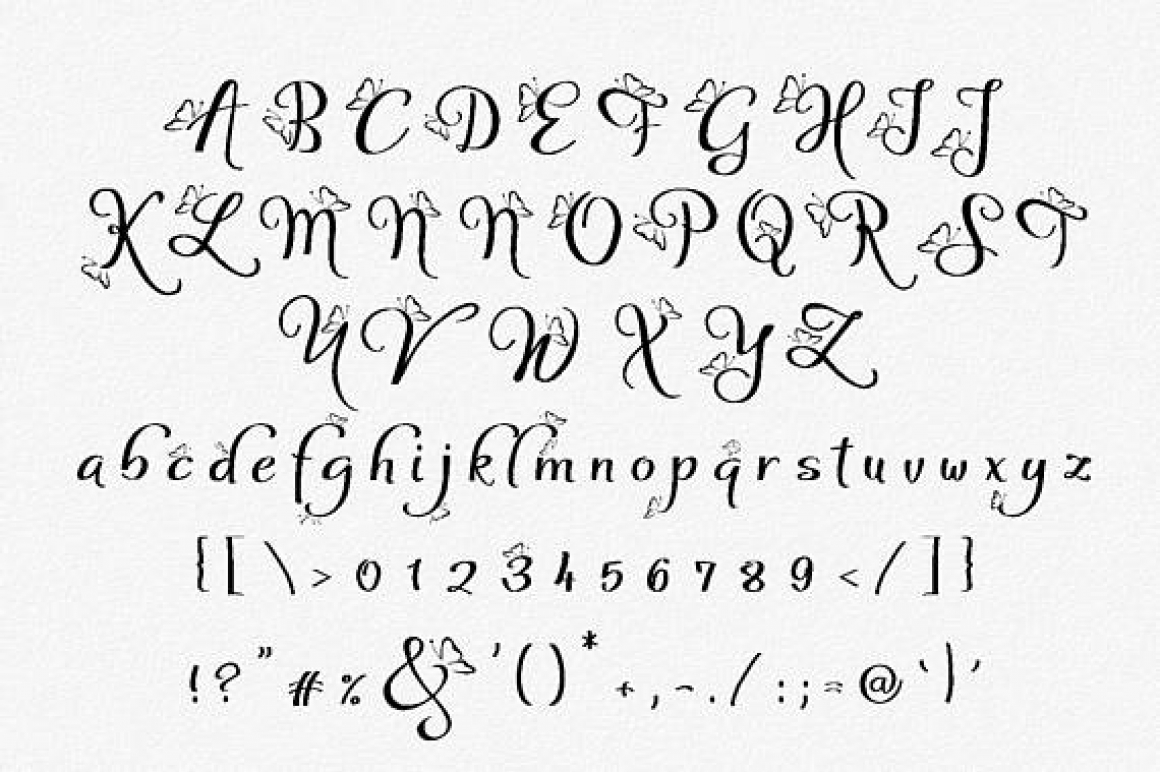 A B C D E F G H I J
K L M N N O P Q R S T
U V W X Y Z
a b c d e f g h i j k l m n o p q r s t u v w x y z
{ [ \ > 0 1 2 3 4 5 6 7 8 9 < / ] }
! ? " # % & ' ( ) * + , - . / : ; = @ ` | ′